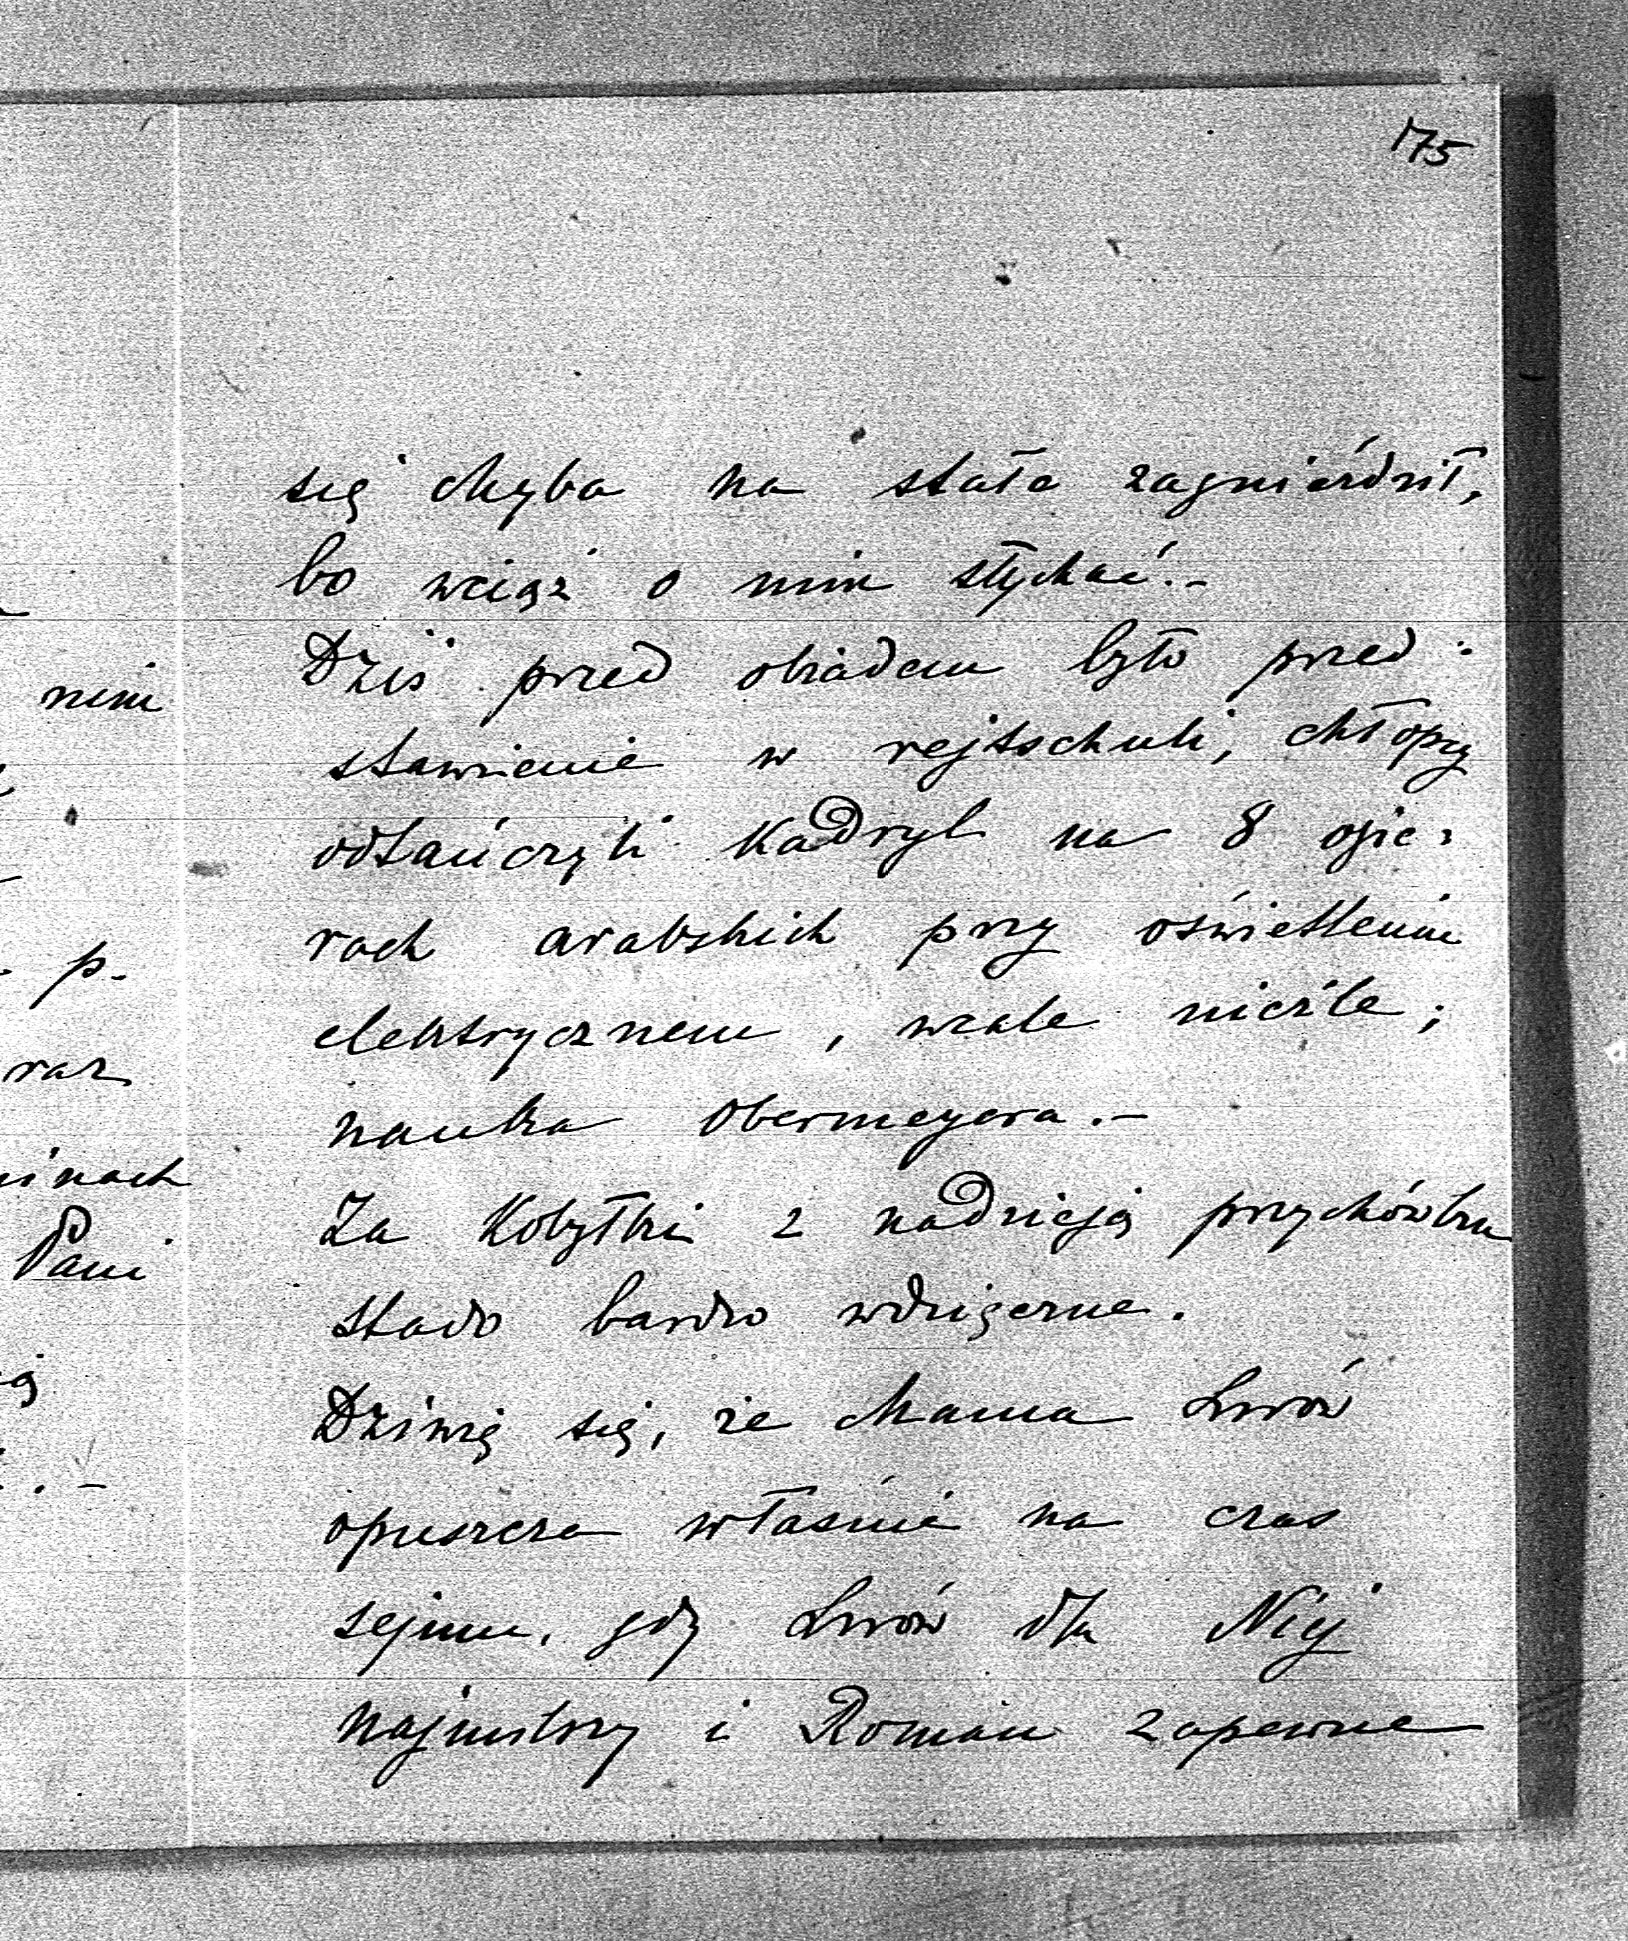 75
się chyba na stałe zagnieździł,
bo wciąż o nim słychać.-
Dziś przed obiadem było przed-
stawienie w rejtschuli, chłopcy
odtańczyli Kadryl na 8 ogie-
rach arabskich przy oświetleniu
elektrycznem, wcale nieźle;
nauka Obermeyera.-
Za Kobyłki z nadzieją przychówku
stado bardzo wdzięczne.
Dziwię się, że Mama Lwów
opuszcza właśnie na czas
sejmu, gdy Lwów dla Niej
najmilszy i Roman zapewne
nim
p.
raz
inach
Pani